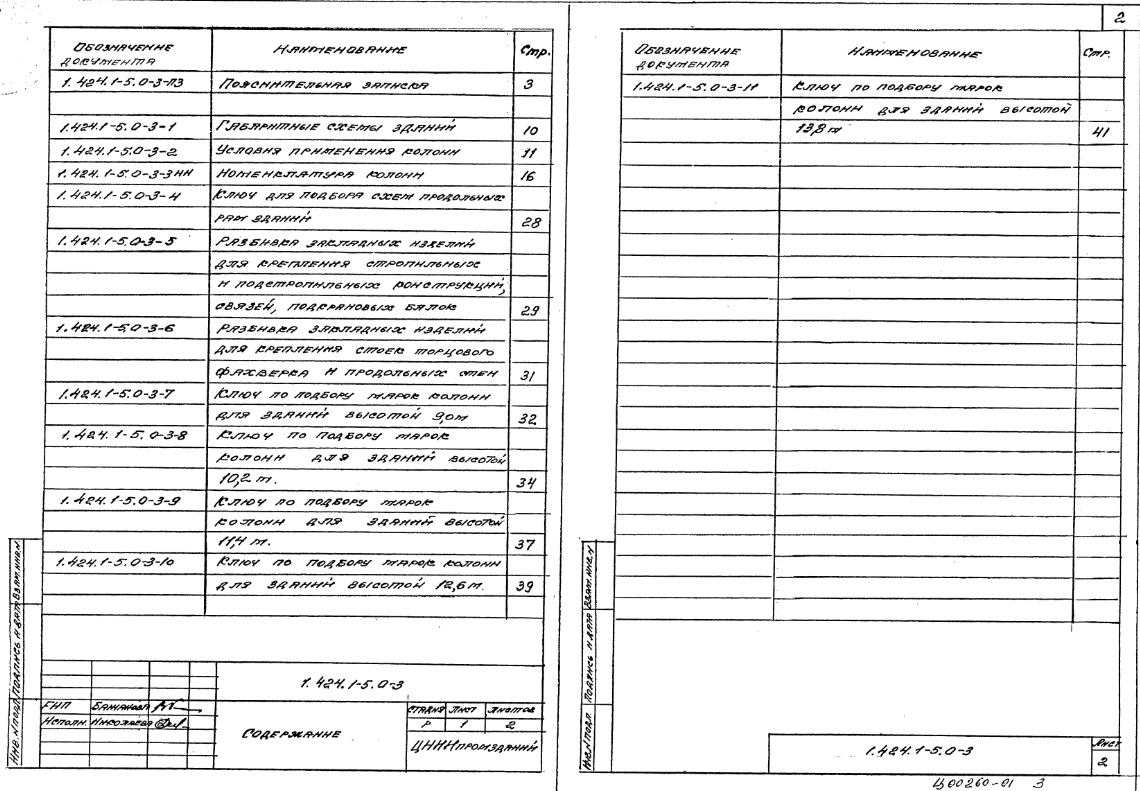 2
Обозначение документа Наименование Стр.
1.424.1-5.0-3-ПЗ Пояснительная записка 3
1.424.1-5.0-3-1 Габаритные схемы зданий 10
1.424.1-5.0-3-2 Условия применения колонн 11
1.424.1-5.0-3-3НИ Номенклатура колонн 16
1.424.1-5.0-3-4 Ключ для подбора схем продольных
рам зданий 28
1.424.1-5.0-3-5 Разбивка закладных изделий
для крепления стропильных
и подстропильных конструкций,
связей, подкрановых балок 29
1.424.1-5.0-3-6 Разбивка закладных изделий
для крепления стоек торцового
фахверка и продольных стен 31
1.424.1-5.0-3-7 Ключ по подбору марок колонн
для зданий высотой 9,0м 32
1.424.1-5.0-3-8 Ключ по подбору марок
колонн для зданий высотой
10,2 м. 34
1.424.1-5.0-3-9 Ключ по подбору марок
колонн для зданий высотой
11,4 м. 37
1.424.1-5.0-3-10 Ключ по подбору марок колонн
для зданий высотой 12,6 м. 39
Инв. № подл. Подпись и дата Взам. инв. №
1.424.1-5.0-3
ГИП
Исполн.
Содержание
Стадия Лист Листов
Р 1 2
ЦНИИпромзданий
Обозначение документа Наименование Стр.
1.424.1-5.0-3-11 Ключ по подбору марок
колонн для зданий высотой
13,8 м 41
Инв. № подл. Подпись и дата Взам. инв. №
1.424.1-5.0-3
Лист
2
Ц00260-01 3